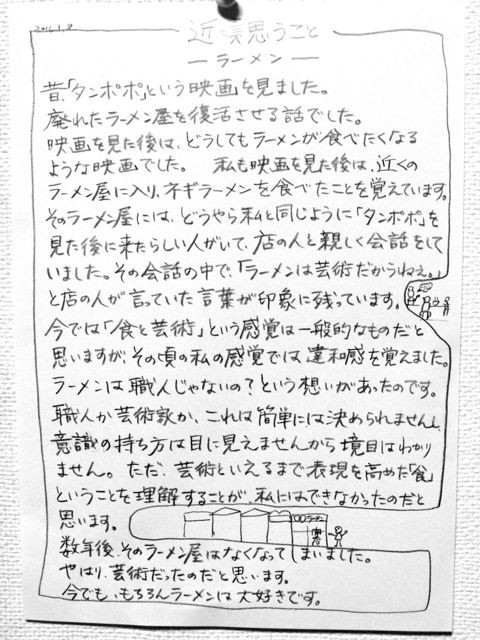 2016.1.8
近頃思うこと
—ラーメン—
昔、「タンポポ」という映画を見ました。
廃れたラーメン屋を復活させる話でした。
映画を見た後は、どうしてもラーメンが食べたくなる
ような映画でした。 私も映画を見た後は、近くの
ラーメン屋に入り、ネギラーメンを食べたことを覚えています。
そのラーメン屋には、どうやら私と同じように「タンポポ」を
見た後に来たらしい人がいて、店の人と親しく会話をして
いました。その会話の中で、「ラーメンは芸術だからねぇ。」
と店の人が言っていた言葉が印象に残っています。
今では「食と芸術」という感覚は一般的なものだと
思いますが、その頃の私の感覚では違和感を覚えました。
ラーメンは職人じゃないの?という想いがあったのです。
職人か芸術家か、これは簡単には決められませんし、
意識の持ち方は目に見えませんから境目はわかり
ません。ただ、芸術といえるまで表現を高めた「食」
ということを理解することが、私にはできなかったのだと
思います。
〇〇ラーメン
数年後、そのラーメン屋はなくなってしまいました。
やはり、芸術だったのだと思います。
今でも、もちろんラーメンは大好きです。